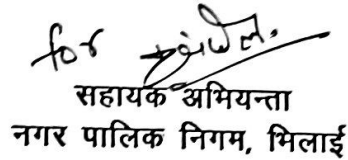 for
सहायक अभियन्ता
नगर पालिक निगम, भिलाई